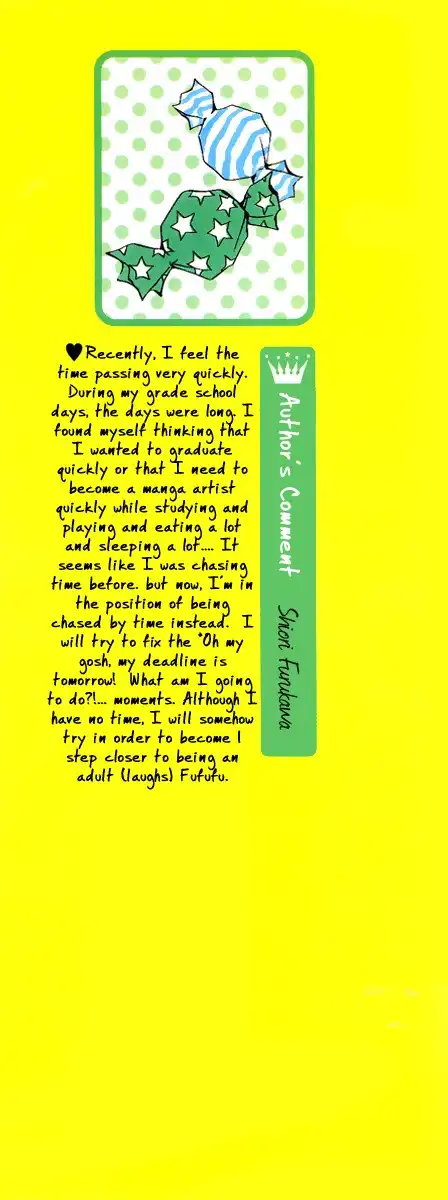 ♥Recently, I feel the
time passing very quickly.
During my grade school
days, the days were long. I
found myself thinking that
I wanted to graduate
quickly or that I need to
become a manga artist
quickly while studying and
playing and eating a lot
and sleeping a lot.... It
seems like I was chasing
time before. but now, I'm in
the position of being
chased by time instead. I
will try to fix the "Oh my
gosh, my deadline is
tomorrow! What am I going
to do?!... moments. Although I
have no time, I will somehow
try in order to become 1
step closer to being an
adult (laughs) Fufufu.
Author's Comment Shiori Furukawa